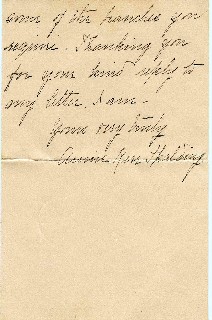 some of the branches you
require. Thanking you
for your kind reply to
my letter, I am -
Yours very truly
Annie Rose Spalding